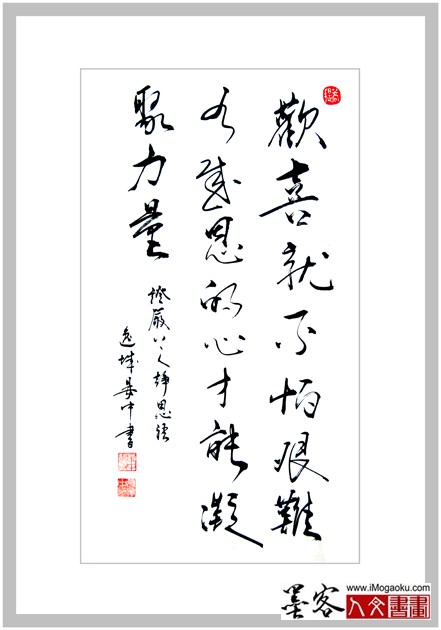 歡喜就不怕艱難
有感恩的心才能凝
聚力量
證嚴上人靜思語
城中書
墨客
www.iMogaoku.com
人文書畫